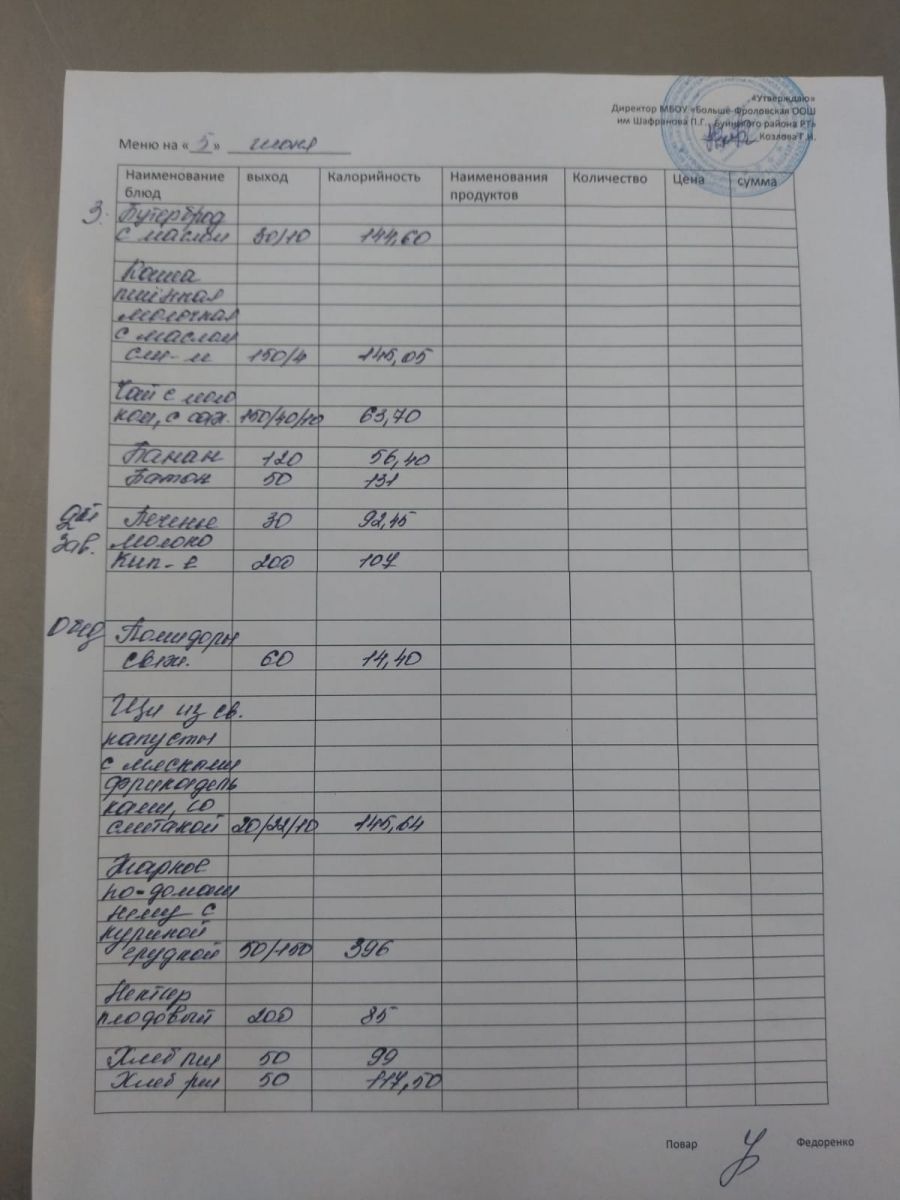 «Утверждаю»
Директор МБОУ «Больше-Фроловская ООШ
им Шафранова П.Г. Буинского района РТ»
Козлова Г.И.
Меню на « 5 » июня
Наименование блюд выход Калорийность Наименования продуктов Количество Цена сумма
З. Бутерброд
с маслом 30/10 144,60
Каша
пшённая
молочная
с маслом
сли-м 150/4 145,05
Чай с моло
ком, с сах. 150/40/10 63,70
Банан 120 56,40
Батон 50 131
Печенье 30 92,45
Зав. Молоко
Кип-е 200 107
Обед Помидоры
свеж. 60 14,40
Щи из св.
капусты
с мясными
фрикадель
ками, со
сметаной 145,64
Жаркое
по-домаш
нему с
куриной
грудкой 50/150 396
Нектар
плодовый 200 85
Хлеб пш 50 99
Хлеб рж 50 117,50
Повар Федоренко